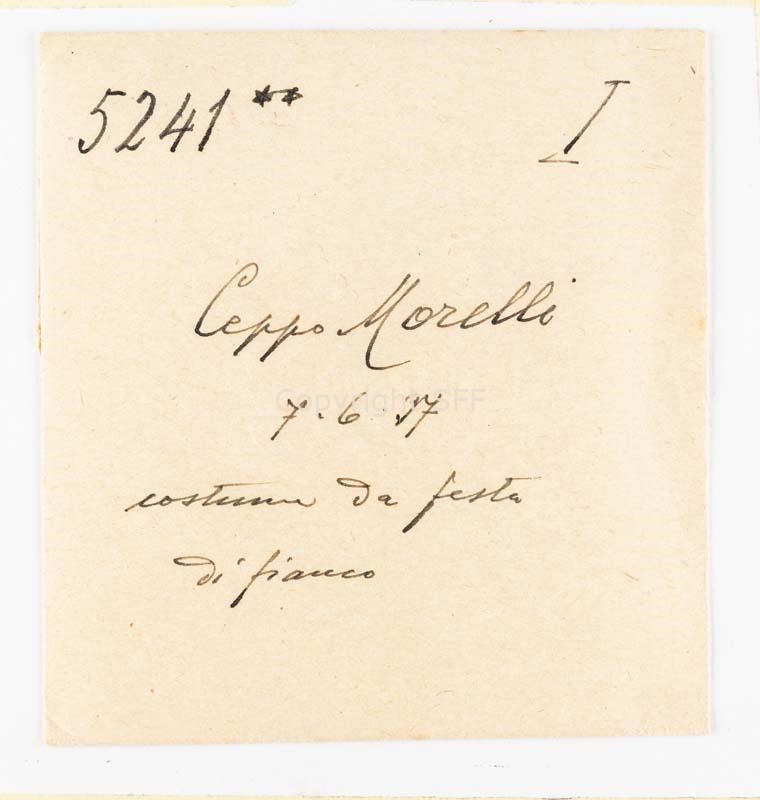 5241 ** I
Ceppo Morelli
7.6.37
costume da festa
di fianco
Copyright SFF